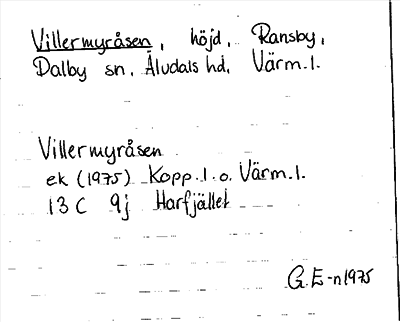 Villermyråsen, höjd, Ransby,
Dalby sn, Äludals hd, Värm.l.
Villermyråsen
ek (1975) Kopp.l.o. Värm.l.
13 C 9j Harfjället
G.E-n 1975